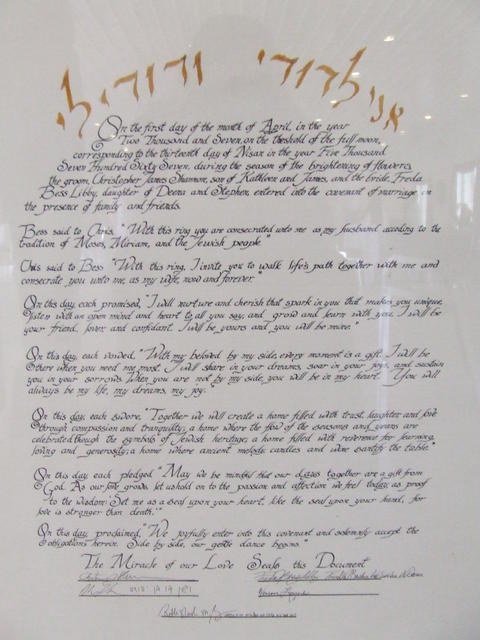 אני לדודי ודודי לי
On the first day of the month of April, in the year
Two Thousand and Seven, on the theshold of the full moon,
corresponding to the thirteenth day of Nisan in the year Five Thousand
Seven Hundred Sixty Seven, during the season of the brightening of flowers,
the groom, Christopher James Shannon, son of Kathleen and James, and the bride, Freda
Bess Libby, daughter of Deena and Stephen, entered into the covenant of marriage in
the presence of family and friends.
Bess said to Chris, "With this ring you are consecrated unto me as my husband accoding to the
tradition of Moses, Miriam, and the Jewish people"
Chris said to Bess "With this ring, I invite you to walk life's path together with me and
consecrate you unto me, as my wife, now and forever."
On this day, each promised, "I will nurture and cherish that spark in you that makes you unique,
listen with an open mind and heart to all you say, and grow and learn with you. I will be
your friend, lover, and confidant. I will be yours and you will be mine."
On this day, each vowed, "With my beloved by my side, every moment is a gift. I will be
there when you need me most. I will share in your dreams, soar in your joys, and sustain
you in your sorrows. When you are not by my side, you will be in my heart. You will
always be my life, my dreams, my joy."
On this day, each swore, "Together we will create a home filled with trust, laughter, and love
through compassion and tranquility; a home where the flow of the seasons and years are
celebrated though the symbols of Jewish heritage; a home filled with reverence for learning,
loving and generosity; a home where ancient melodie candles and wine santify the table."
On this day each pledged "May we be mindful that our days together are a gift from
God. As our love grows, let us hold on to the passion and affection we feel today, as proof
to the wisdom: Set me as a seal upon your heart, like the seal upon your hand, for
love is stronger than death."
On this day, proclaimed, "We joyfully enter into this covenant and solemnly accept the
obligations herein. Side by side, our gentle dance begins."
The Miracle of our Love Seals this Document